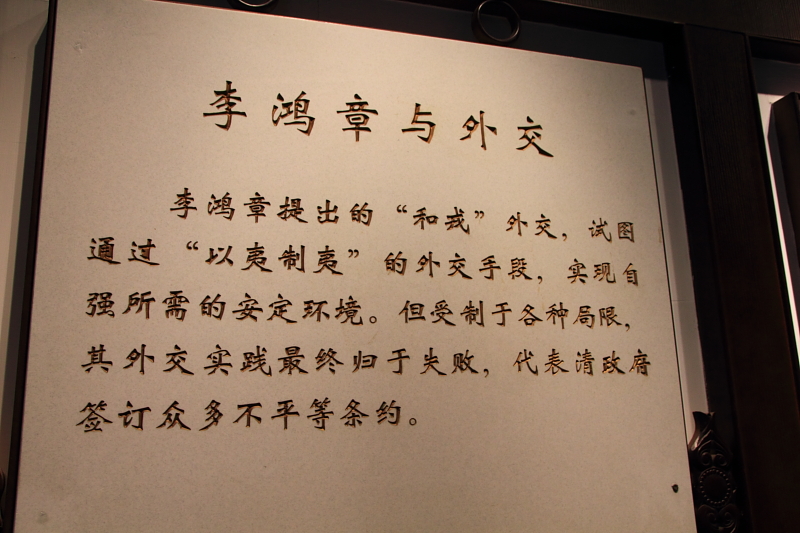 李鸿章与外交
李鸿章提出的“和戎”外交，试图
通过“以夷制夷”的外交手段，实现自
强所需的安定环境。但受制于各种局限，
其外交实践最终归于失败，代表清政府
签订众多不平等条约。